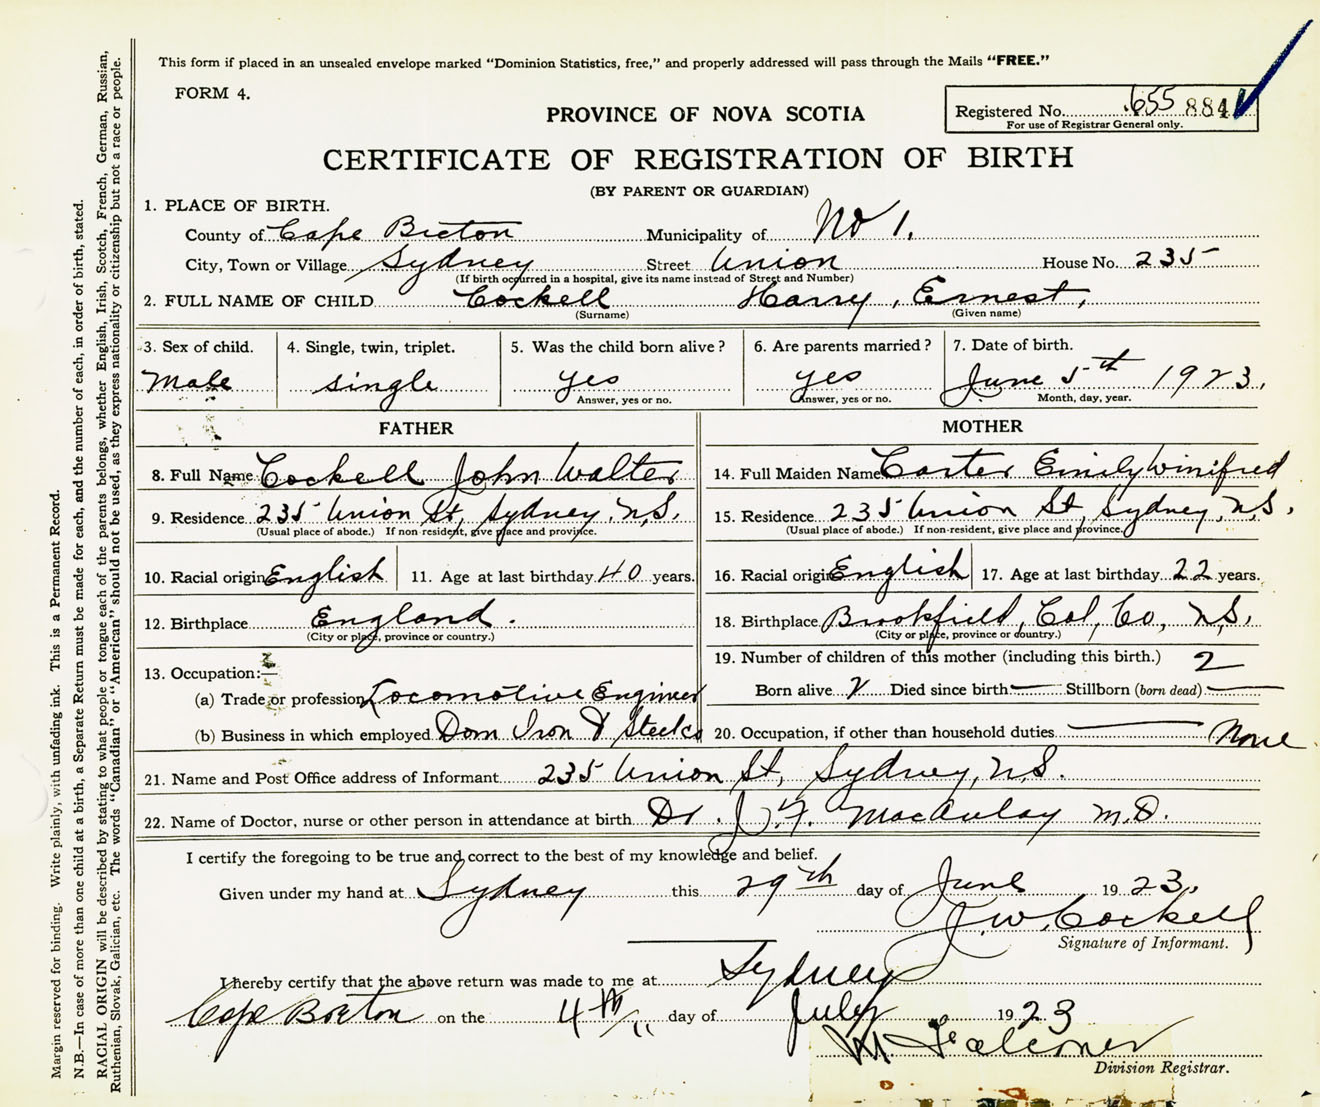 This form if placed in an unsealed envelope marked "Dominion Statistics, free," and properly addressed will pass through the Mails "FREE."
FORM 4.
Registered No. 655 884
For use of Registrar General only.
PROVINCE OF NOVA SCOTIA
CERTIFICATE OF REGISTRATION OF BIRTH
(BY PARENT OR GUARDIAN)
1. PLACE OF BIRTH.
County of Cape Breton Municipality of No 1.
City, Town or Village Sydney Street Union House No. 235
(If birth occurred in a hospital, give its name instead of Street and Number)
2. FULL NAME OF CHILD Cockell Harry, Ernest,
(Surname) (Given name)
3. Sex of child. 4. Single, twin, triplet. 5. Was the child born alive? 6. Are parents married? 7. Date of birth.
Male single yes yes June 5th 1923.
Answer, yes or no. Answer, yes or no. Month, day, year.
FATHER MOTHER
8. Full Name Cockell John Walter 14. Full Maiden Name Carter Emily Winifred
9. Residence 235 Union St, Sydney, N.S. 15. Residence 235 Union St, Sydney, N.S.
(Usual place of abode.) If non-resident, give place and province. (Usual place of abode.) If non-resident, give place and province.
10. Racial origin English 11. Age at last birthday 40 years. 16. Racial origin English 17. Age at last birthday 22 years.
12. Birthplace England. 18. Birthplace Brookfield, Col, Co, N.S.
(City or place, province or country.) (City or place, province or country.)
13. Occupation:— 19. Number of children of this mother (including this birth.) 2
(a) Trade or profession Locomotive Engineer Born alive 2 Died since birth — Stillborn (born dead) —
(b) Business in which employed Dom Iron & Steel Co 20. Occupation, if other than household duties — None
21. Name and Post Office address of Informant 235 Union St, Sydney, N.S.
22. Name of Doctor, nurse or other person in attendance at birth Dr. J.F. MacAulay M.D.
I certify the foregoing to be true and correct to the best of my knowledge and belief.
Given under my hand at Sydney this 29th day of June 1923.
J.W. Cockell
Signature of Informant.
I hereby certify that the above return was made to me at Sydney
Cape Breton on the 4th day of July 1923
Falconer
Division Registrar.
Margin reserved for binding. Write plainly, with unfading ink. This is a Permanent Record.
N.B.—In case of more than one child at a birth, a Separate Return must be made for each, and the number of each, in order of birth, stated.
RACIAL ORIGIN will be described by stating to what people or tongue each of the parents belongs, whether English, Irish, Scotch, French, German, Russian,
Ruthenian, Slovak, Galician, etc. The words "Canadian" or "American" should not be used, as they express nationality or citizenship but not a race or people.